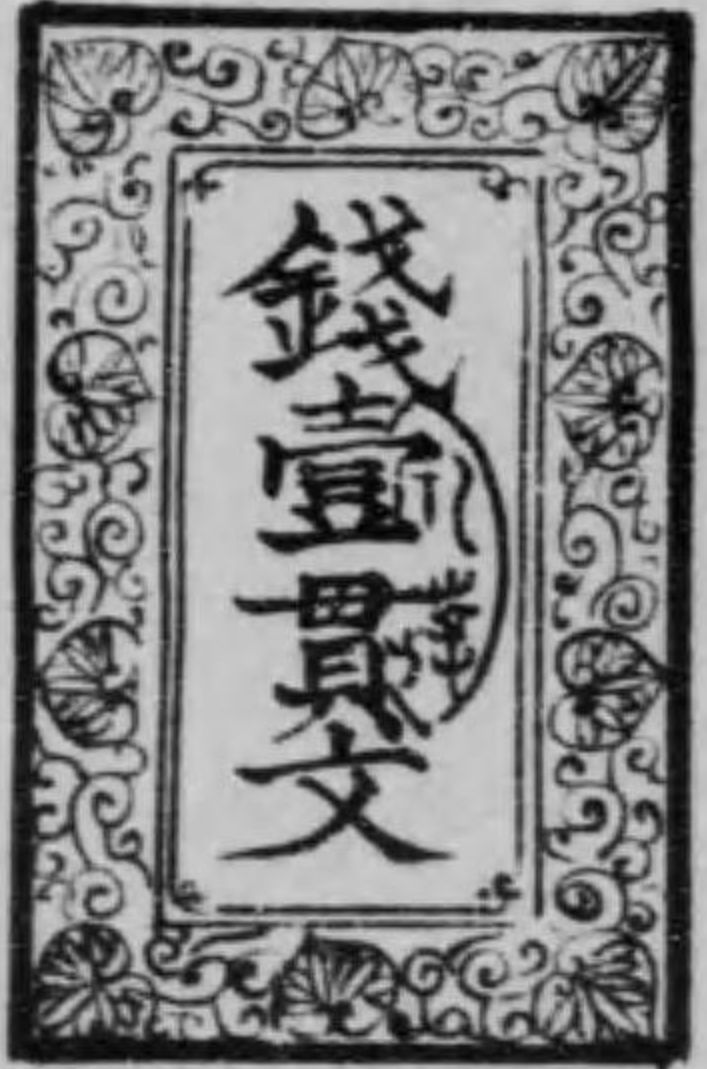 錢壹貫文